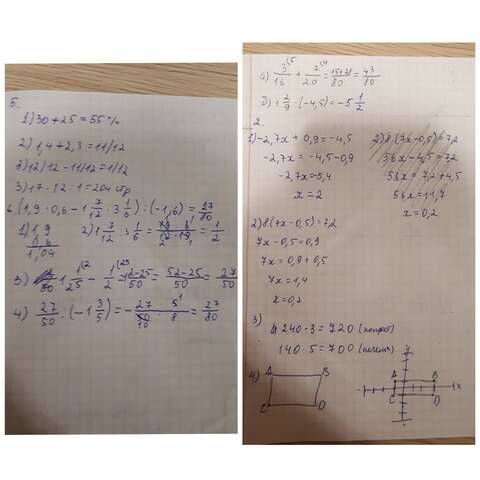 5.
1) 30+25=55%
2) 1,4+2,3=11/12
3) 12/12-11/12=1/12
3) 17·12:1=204 стр
6. (1,9·0,6-1 7/12:3 1/6):(-1,6)=27/80
1) 1,9
0,6
1,04
2) 1 7/12:3 1/6=19·6/12·19=1/2
50 1/25-1/2=52-25/50=27/50
4) 27/50:(-1 3/5)=-27 5/50 8=27/80
а) 3/16+7/20=15+28/80=43/80
2.
1) -2,7x+0,9=-4,5
-2,7x=-4,5-0,9
-2,7x=-5,4
x=2
2) 8(7x-0,5)=7,2
56x-4,5=7,2
56x=7,2+4,5
56x=11,7
x=0,2
2) 8(7x-0,5)=7,2
7x-0,5=0,9
7x=0,9+0,5
7x=1,4
x=0,2
3)
240·3=720
140·5=700
4) A B
C D
y
x
A B
C D